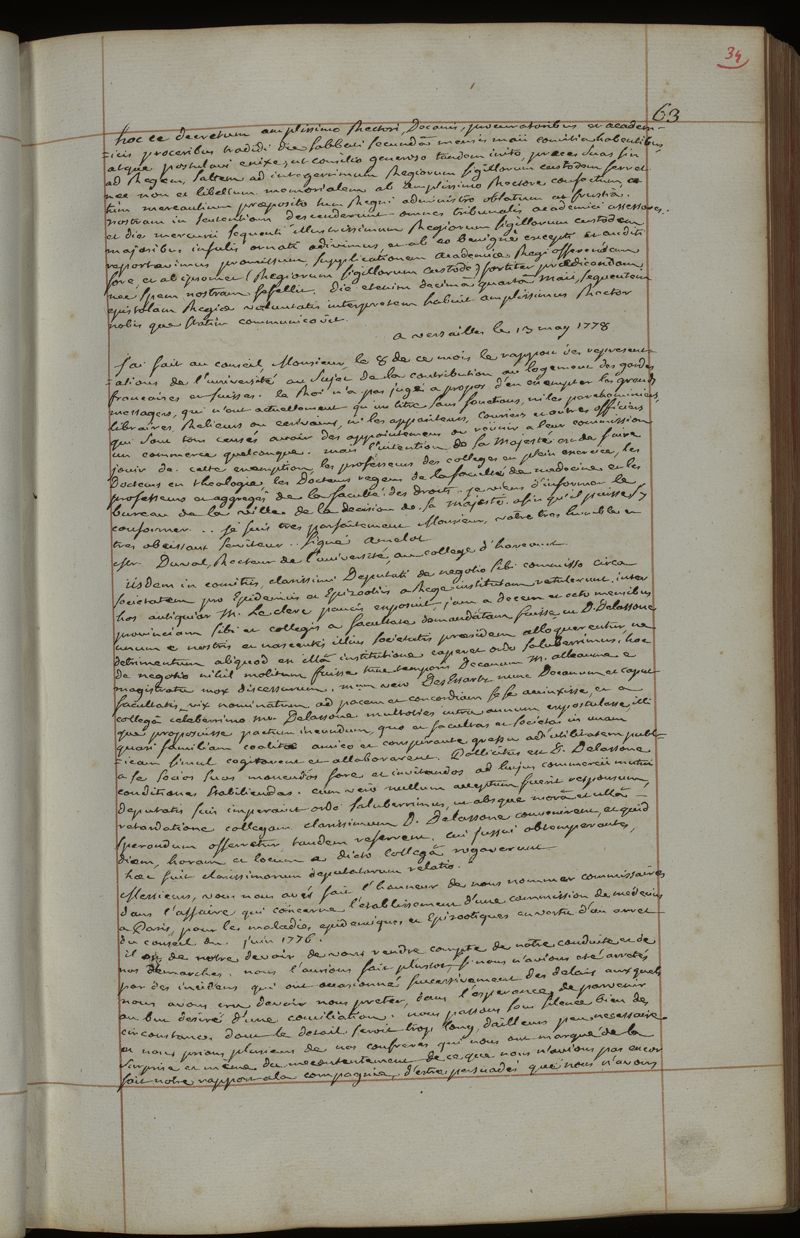 34
63
hocce decretum amplissimo Rectori, Decanis, procuratoribus et academ=
=icis proceribus tradidi die sabbati secundâ mensis maii comitia habentibus,
atque postulavi enixe, ut consilio generoso tandem inito, preces suas sin
ad Regem, saltem ad integerrimum Regiorum sigillorum custodem ferret
nec non et libellum memorialem ab amplissimo Rectore confectum, et
tùm mercantium præposito tum Regni administro oblatum at frustrà.
nostram in sententiam descenderunt omnes tribunalis academici assessores.
et die mercurii sequenti illustrissimum Regiorum sigillorum custodem
majoribus infulis ornati adivimus, et ab eo benigné excepti et auditi
reportavimus promissum, supplicationem academiæ Regi offerendam
fore, et ab ipsomet (Regiorum sigillorum custode) fortiter prædicandam.
nec spem nostram fefellit. die etenim decimâ quartâ maii, sequentem
epistolam Regiæ voluntatis interpretem habuit amplissimus Rector
nobis que statim communicavit.
a versailles le 13 may 1778
J'ai fait au conseil, Monsieur, le 8 de ce mois le rapport des represent=
=ations de l'université au sujet de la contribution au logement des gardes
francaises et suisses. le Roi n'a pas jugé a propos d'en exempter les grands
messagers, qui n'ont actuellement qu'un titre sans fonctions, ni les parcheminiers,
libraires, Relieurs ou ecrivains, ni les appariteurs, couriers et autres officiers
qui sont tous censés avoir des appointemens ou reunir a leur commission
un commerce quelconque. mais l'intention de sa Majesté est de faire
jouir de cette exemption les professeurs des colleges en plein exercice, les
Docteurs en theologie, les Docteurs regens de la faculté de medecine et les
professeurs et aggregés de la faculté des droits. je viens d'informer le
bureau de la ville de la decision de sa Majesté afin qu'il puisse s'y
conformer... je suis tres parfaitement Monsieur, votre tres humble et
tres obeissant serviteur.. signé amelot
Mr. Duval, Recteur de l'université, au college d'harcourt.
iisdem in comitiis, clarissimi Deputati de negotio sibi commisso circa
societatem pro Epidemiis et Epizootiis a Rege institutam retulerunt. inter
hos antiquior M. Le clerc paucis exposuit, jam a decem et octo mensibus
provinciam sibi et collegis a facultate demandatam fuisse, ut D. Delassone
unum e nostris et nascentis illius societatis præsidem alloquerentur, ne
detrimentum aliquod ex illâ institutione caperet ordo saluberrimus; hoc
de negotio nihil molitum fuisse tunc temporis Decanum M. alleaume e
magistratu mox discessurum. mum vero DesEssartz nunc Decanum et caput
facultatis, vix nominatum, ad pacem et concordiam se se accinxisse, et a
collegâ celeberrimo mr. Delassone multoties intra annum expostulasse, illi
que proposuisse pactum ineundum, quo et facultas et societas in unam
quasi familiam coalitæ amico et conspirante gressu ad utilitatem publ=
=icam simul cogitarent et allaborarent. Pollicitus est D. Delassone
a se socios suos monendos fore et invitandos ad hujus commercii mutui
conditiones stabiliendas. cum verò nullum acceptum fuerit responsum,
deputatis suis imperavit ordo saluberrimus, ut absque morâ et ullâ
retardatione collegam clarissimum D. Delassone convenirent, et quid
sperandum offerretur, tandem referrent. cui jussui obtemperantes,
diem, horam et locum a dicto collegâ rogaverunt
hæc fuit clarissimorum deputatorum relatio.
Messieurs, vous nous avés fait l'honneur de nous nommer commissaires
dans l'affaire qui concerne l'etablissement d'une commission de medecins
a Paris, pour les maladies epidemiques et Epizootiques en vertu d'un arret
du conseil du juin 1776.
il est de notre devoir de vous rendre compte de nôtre conduite et de
nos demarches. nous l'aurions fait plustot, si nous n'avions eté arretés
par des incidens qui ont occasionné successivement des delais auxquels
nous avons cru devoir nous preter, dans l'esperance de parvenir
au but desiré d'une conciliation. nous passons sous silence bien des
circonstances dont le detail seroit trop long, d'ailleurs peu necessaire
et nous prions plusieurs de nos confreres qui nous ont marqué de la
surprise et même du mecontentement de ce que nous n'avions pas encor
fait notre rapport a la compagnie, d'estre persuadés que nous n'avons